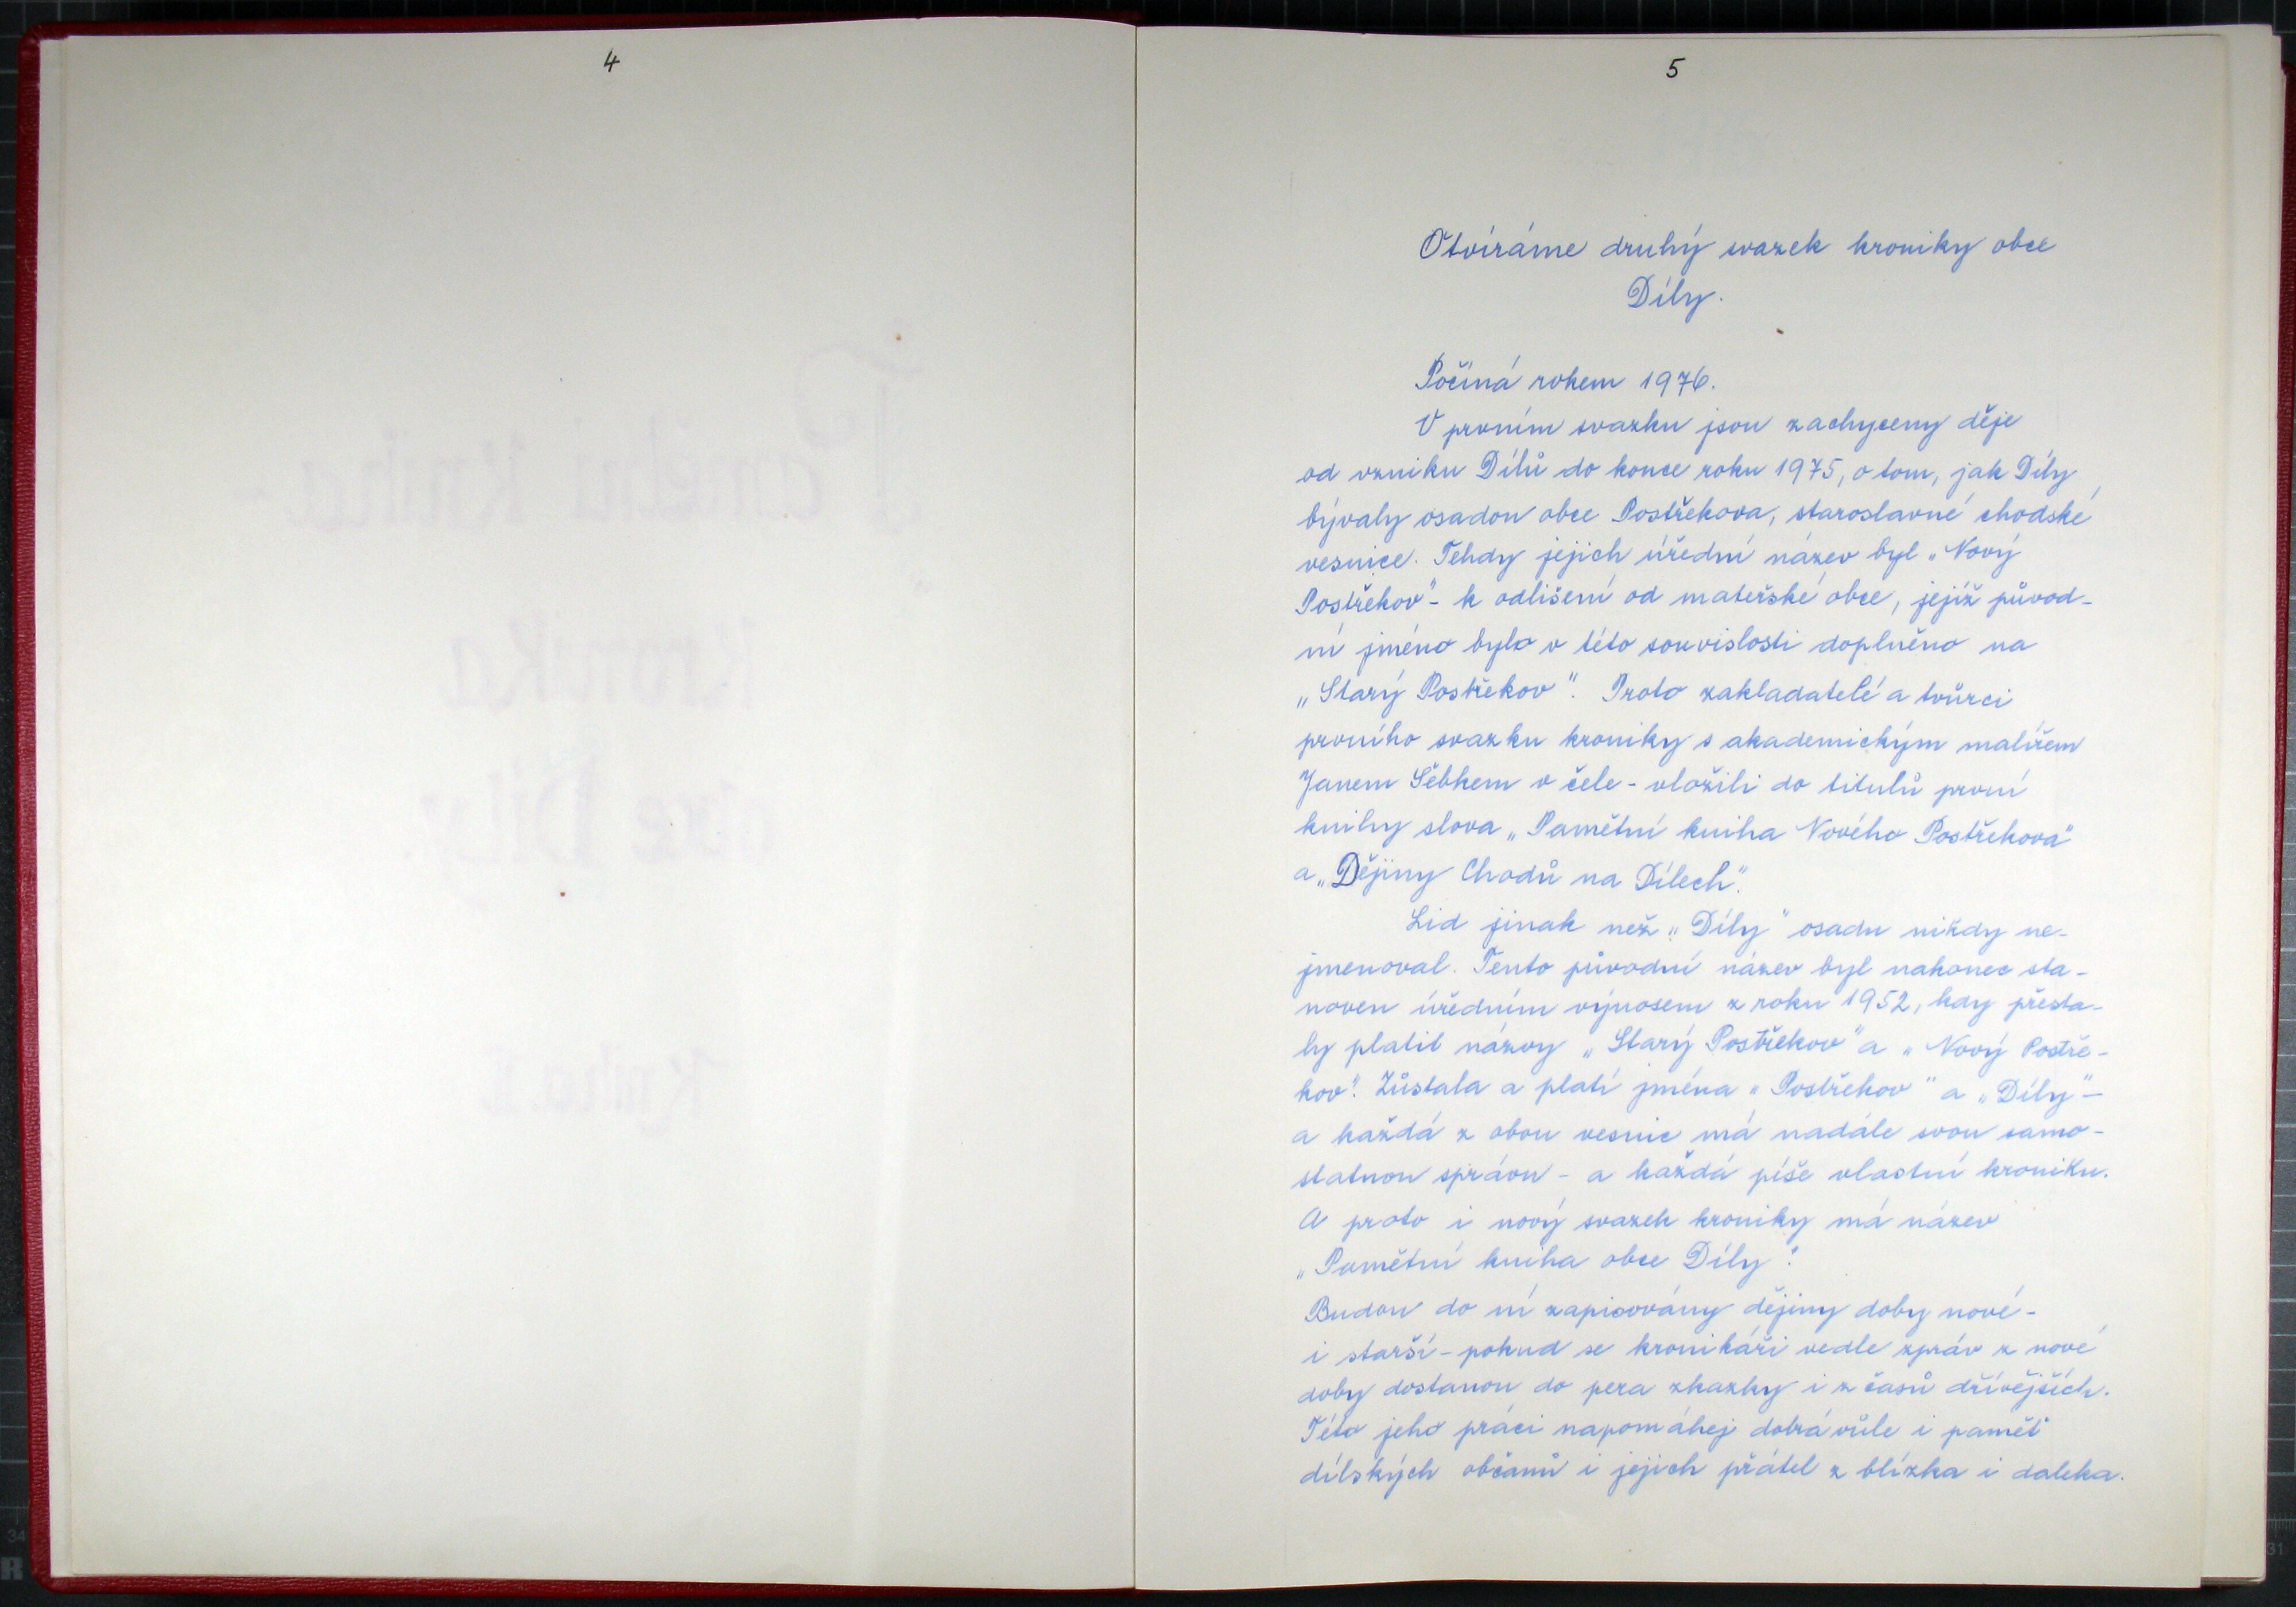 4
5
Otvíráme druhý svazek kroniky obce
Díly.
Počíná rokem 1976.
V prvním svazku jsou zachyceny děje
od vzniku Dílů do konce roku 1975, o tom, jak Díly
bývaly osadou obce Postřekova, staroslavné chodské
vesnice. Tehdy jejich úřední název byl „Nový
Postřekov" - k odlišení od mateřské obce, jejíž původ-
ní jméno bylo v této souvislosti doplněno na
„Starý Postřekov". Proto zakladatelé a tvůrci
prvního svazku kroniky s akademickým malířem
Janem Šebkem v čele - vložili do titulů první
knihy slova „Pamětní kniha Nového Postřekova"
a „Dějiny Chodů na Dílech".
Lid jinak než „Díly" osadu nikdy ne-
jmenoval. Tento původní název byl nakonec sta-
noven úředním výnosem z roku 1952, kdy přesta-
ly platit názvy „Starý Postřekov" a „Nový Postře-
kov". Zůstala a platí jména „Postřekov" a „Díly" -
a každá z obou vesnic má nadále svou samo-
statnou správu - a každá píše vlastní kroniku.
A proto i nový svazek kroniky má název
„Pamětní kniha obce Díly".
Budou do ní zapisovány dějiny doby nové -
i starší - pokud se kronikáři vedle zpráv z nové
doby dostanou do pera zkazky i z časů dřívějších.
Této jeho práci napomáhej dobrá vůle i paměť
dílských občanů i jejich přátel z blízka i daleka.